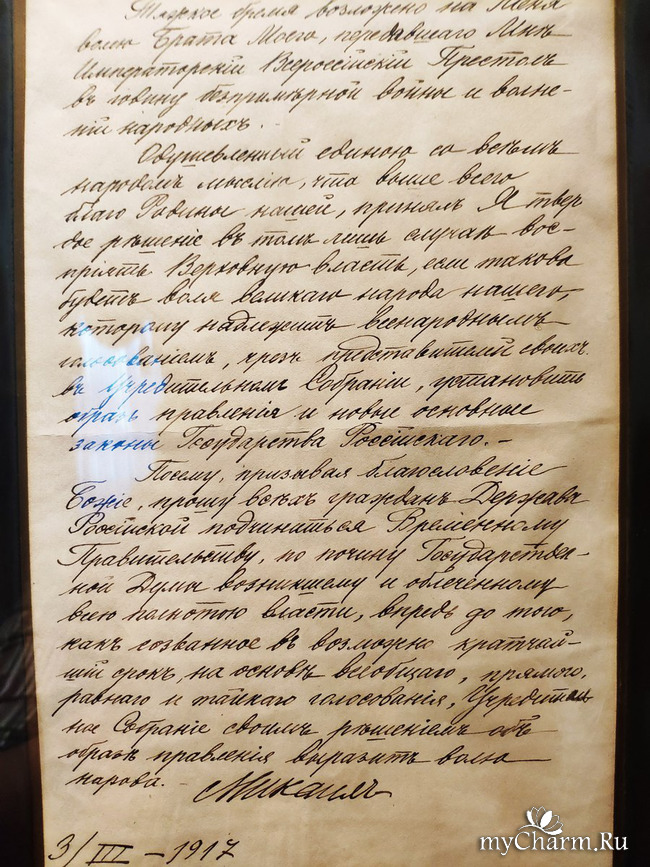 Тяжкое бремя возложено на Меня
волею Брата Моего, передавшаго Мнѣ
Императорскій Всероссійскій Престолъ
въ годину безпримѣрной войны и волне-
ній народныхъ.
Одушевленный единою со всѣмъ
народомъ мыслію, что выше всего
благо Родины нашей, принялъ Я твер
дое рѣшеніе въ томъ лишь случаѣ вос-
пріять Верховную власть, если такова
будетъ воля великаго народа нашего,
которому надлежитъ всенароднымъ
голосованіемъ, чрезъ представителей своихъ
въ Учредительномъ Собраніи, установить
образъ правленія и новые основные
законы Государства Россійскаго. –
Посему, призывая благословеніе
Божіе, прошу всѣхъ гражданъ Державы
Россійской подчиниться Временному
Правительству, по почину Государствен-
ной Думы возникшему и облеченному
всею полнотою власти, впредь до того,
какъ созванное въ возможно кратчай-
шій срокъ, на основѣ всеобщаго, прямого,
равнаго и тайнаго голосованія, Учредитель
ное Собраніе своимъ рѣшеніемъ объ
образѣ правленія выразитъ волю
народа.
Михаилъ
3/III – 1917
myCharm.Ru